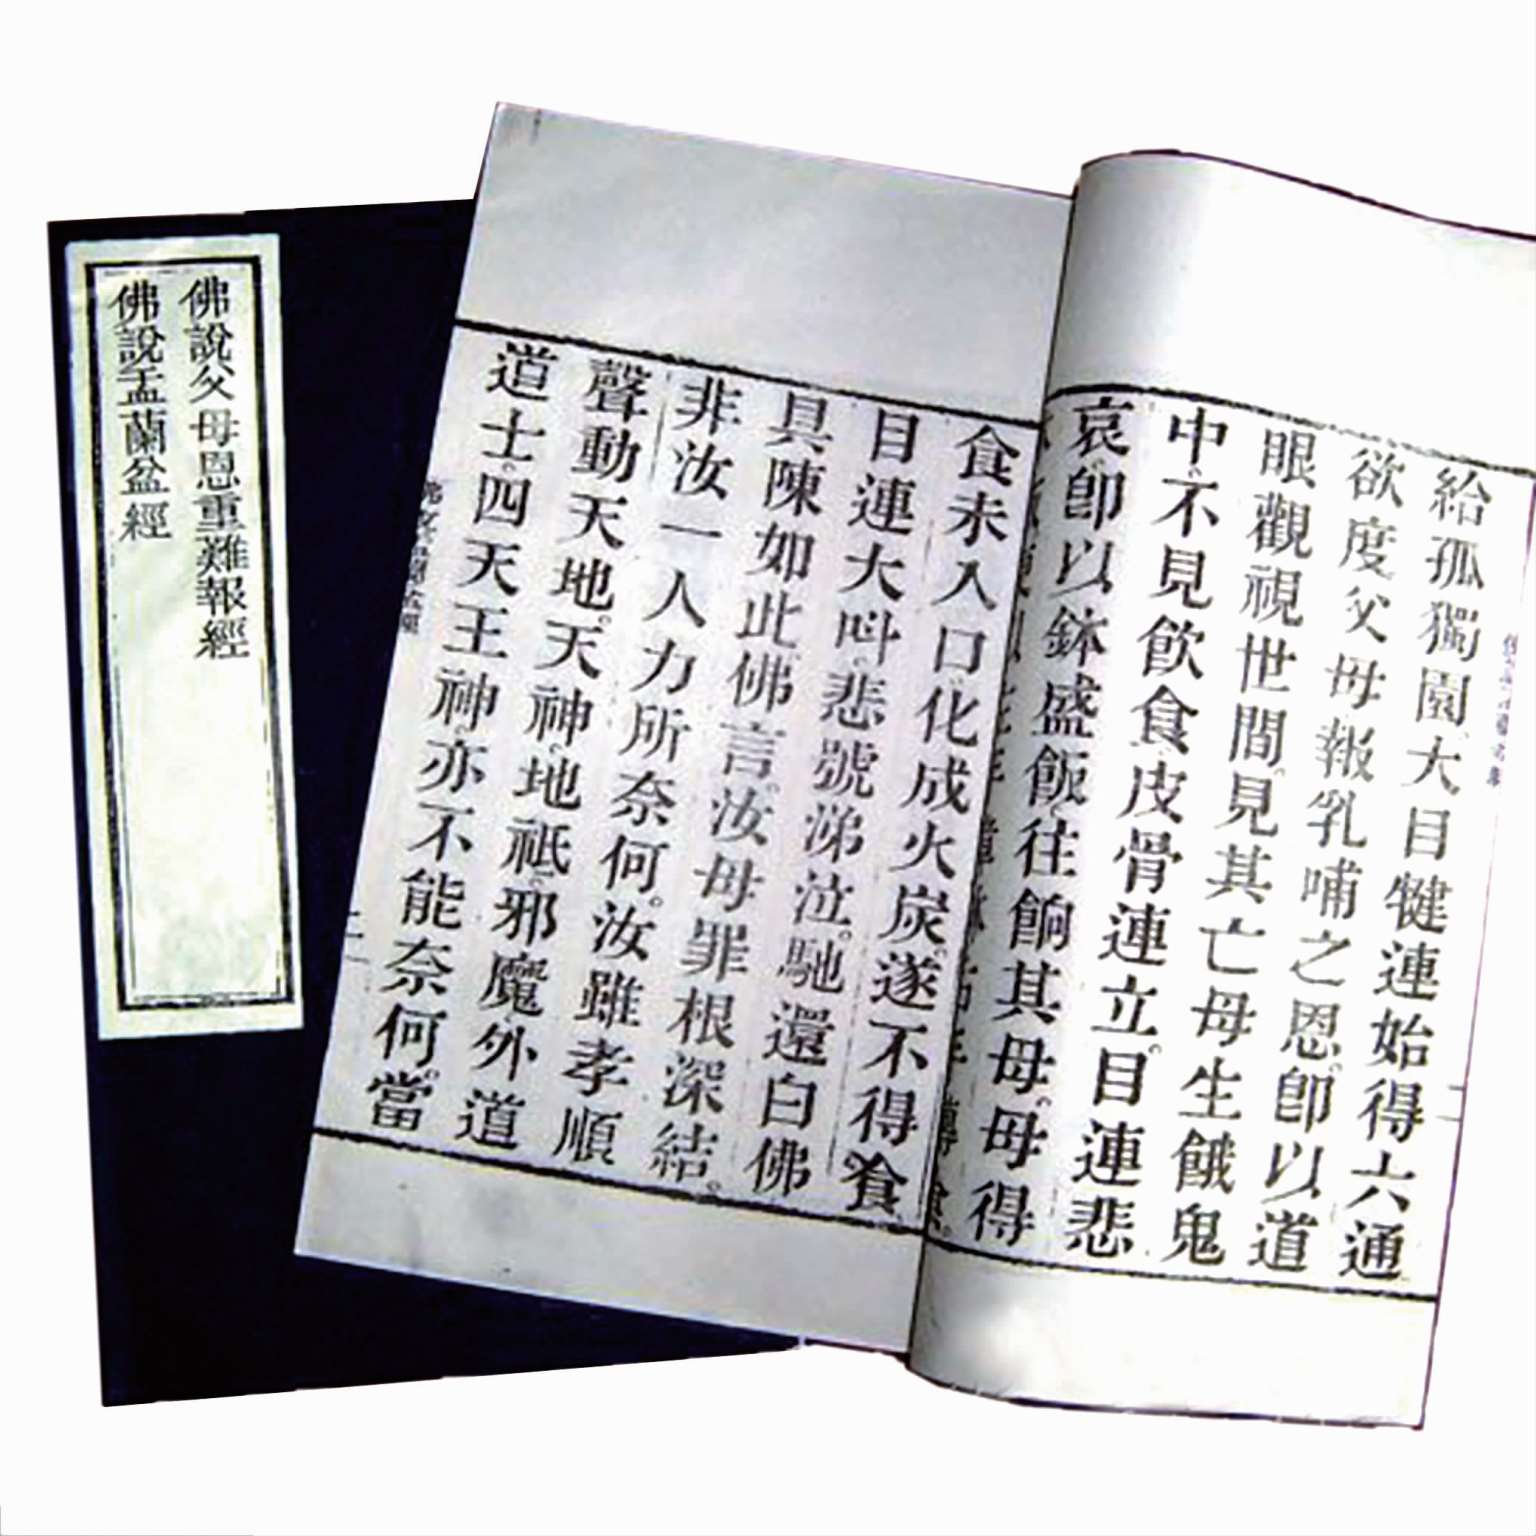 佛說父母恩重難報經
佛說盂蘭盆經
給孤獨園、大目犍連始得六通
欲度父母報乳哺之恩。卽以道
眼觀視世間。見其亡母生餓鬼
中。不見飲食皮骨連立。目連悲
哀。卽以鉢盛飯。往餉其母。母得
食未入口。化成火炭。遂不得食。
目連大呌。悲號涕泣。馳還白佛
具陳如此。佛言。汝母罪根深結。
非汝一人力所奈何。汝雖孝順
聲動天地。天神。地祇。邪魔外道
道士。四天王神。亦不能奈何。當
二